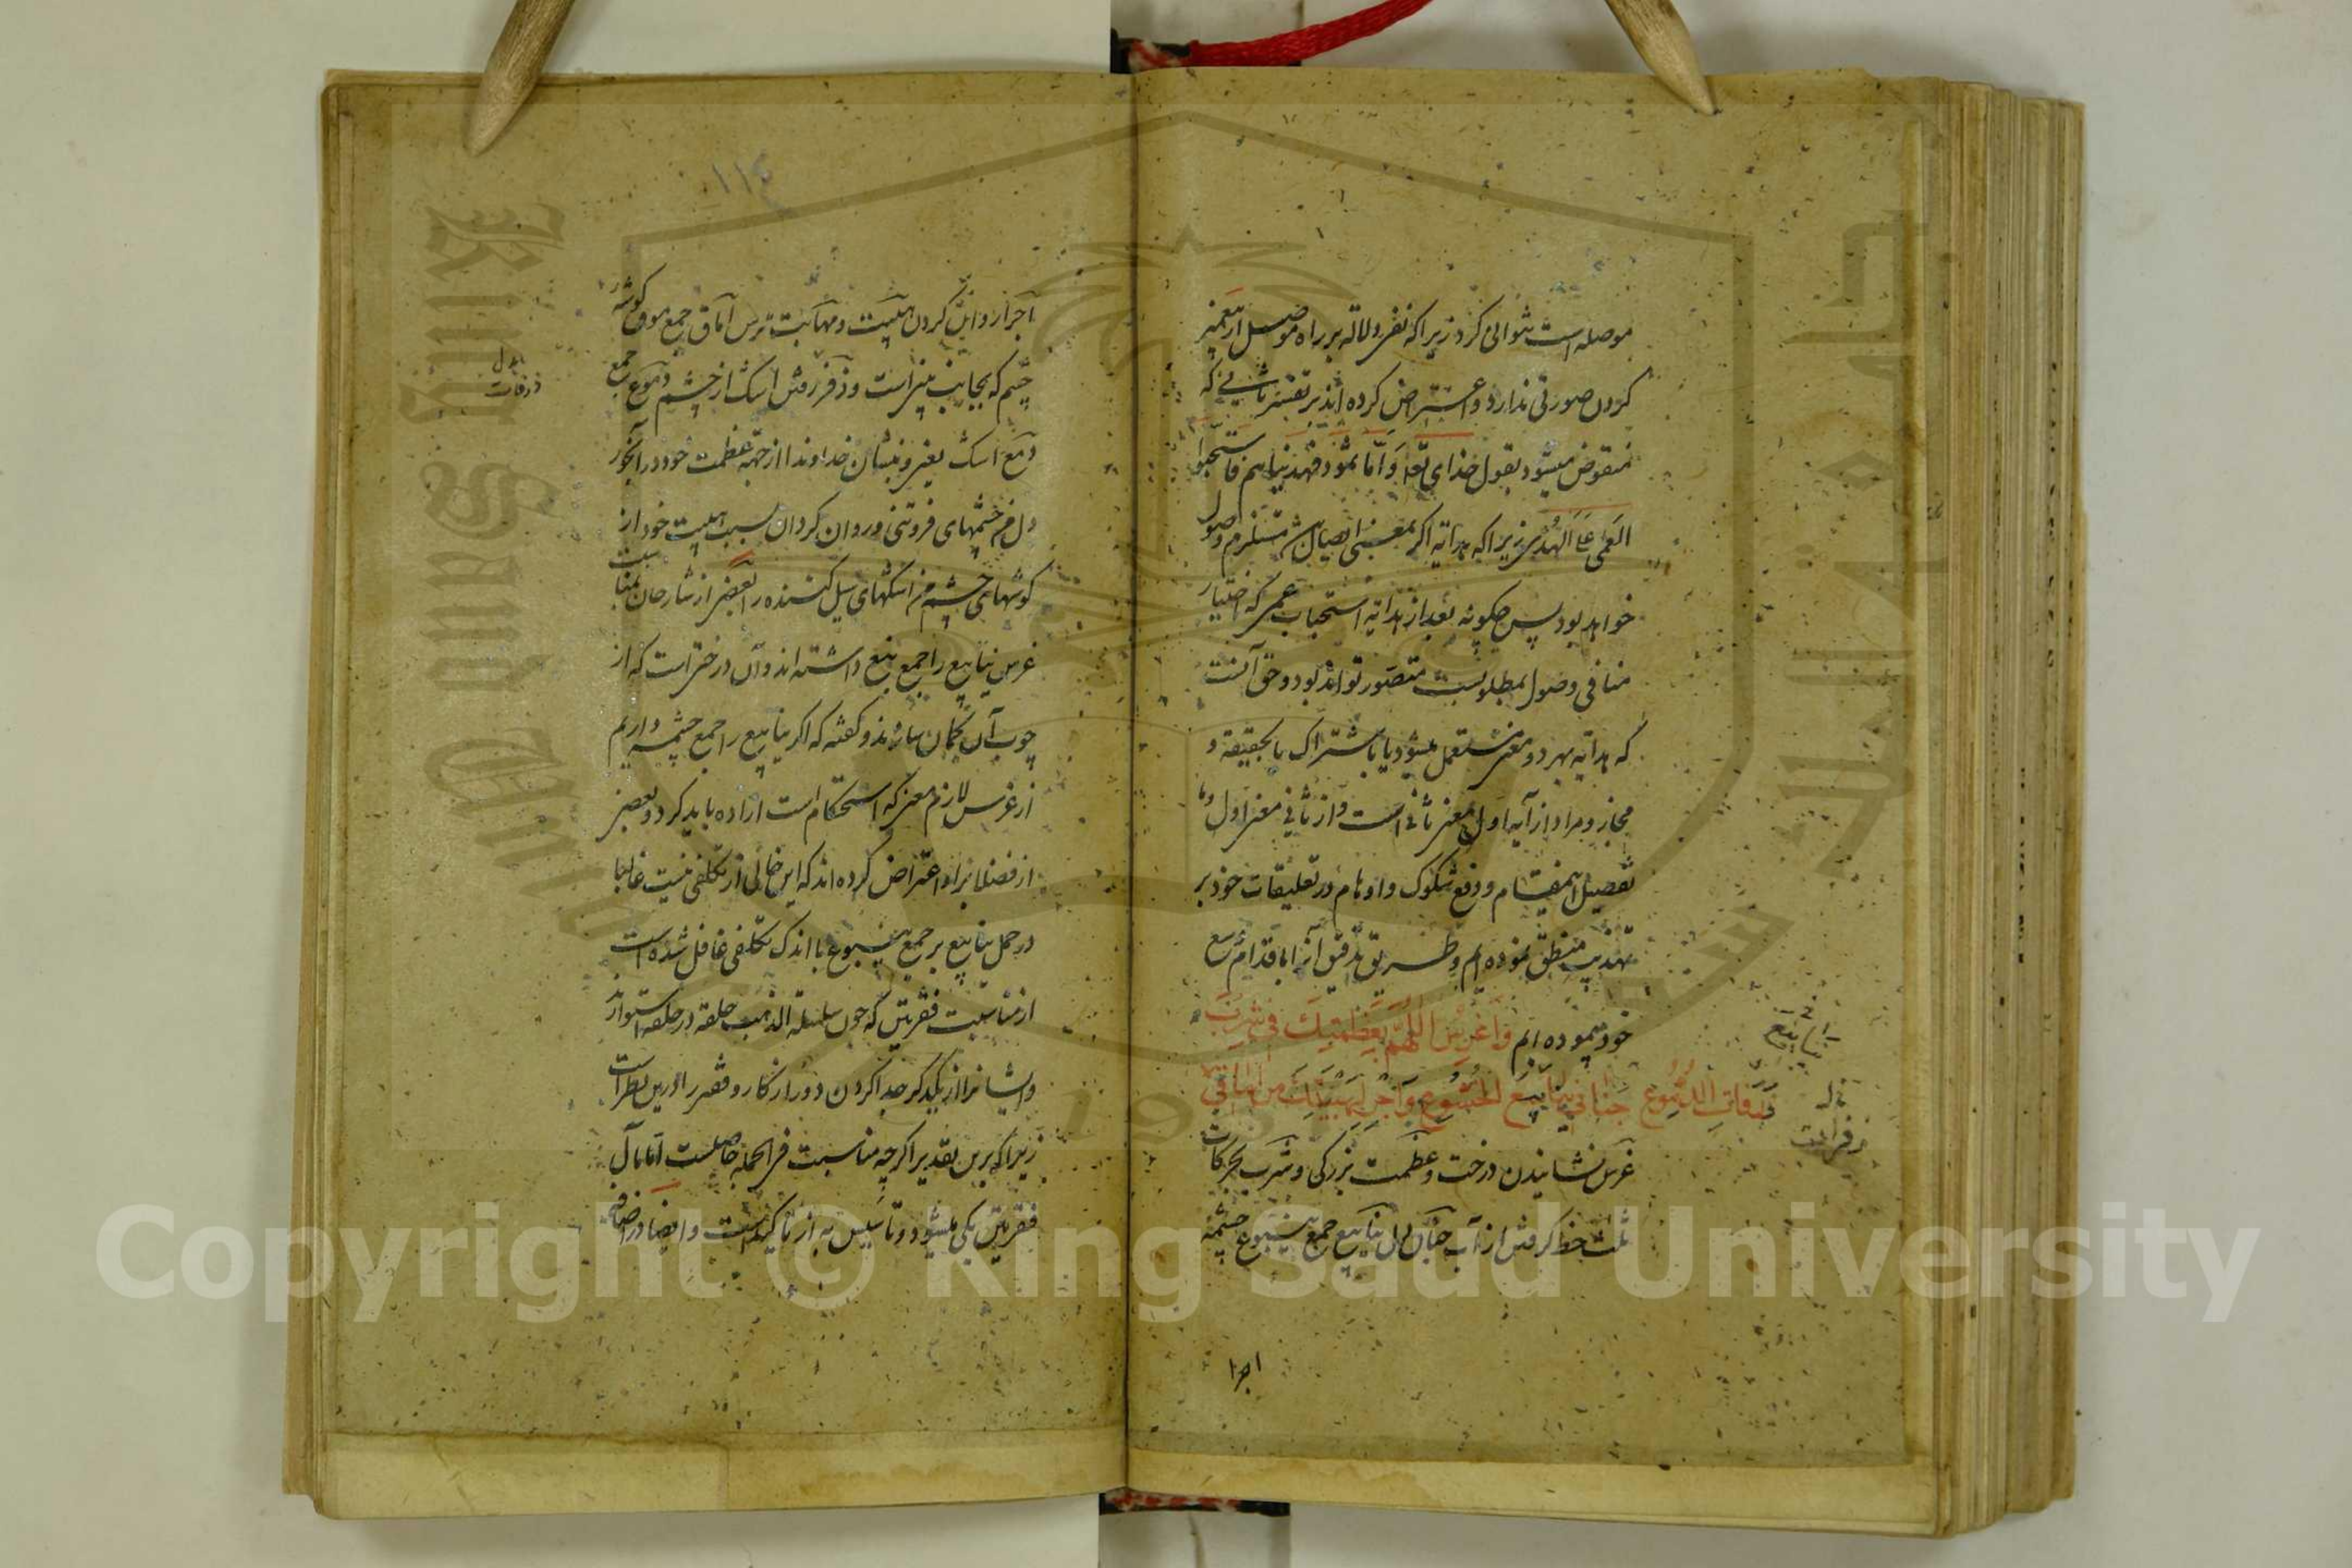 موصله است توالی کرد زیرا که نفی ولا له بر راه موصل ازین معنی
کردن صورتی ندارد و اعتراض کرده اند بر تفسیر ثانی که
منقوض میشود بقول خدای تعه وَاَمّا ثمود فهدیناهم فاستحبّوا
العَمٰی عَلَی الهُدٰی زیرا که هدایه اکر بمعنی ایصال مستلزم وصول
خواهد بود پس چکونه بعد از هدایه استحباب عمی که اختیار
منافی وصول بمطلوبست متصور تواند بود و حق آنست
که هدایه بهر دو معنی مستعمل میشود یا باشتراک یا بحقیقة و
مجاز و مراد از آیه اول معنی ثانی است و از ثانی معنی اول و ما
تفصیل اینمقام و دفع شکوک و اوهام در تعلیقات خود بر
تهذیب منطق نموده ایم و طریق تدقیق آنرا باقدام شرع
خود پیموده ایم وَاغْرِسِ اللّهُمَّ بِعَظَمَتِكَ فی شِرْبِ
جَنانی یَنابیعَ الخُشُوعِ وَاَجْرِ لِهَیْبَتِكَ مِن آماقی زَفَراتِ الدُّمُوعِ
غرس نشانیدن درخت و عظمت بزرکی و شرب بحرکات
ثلث حظ کرفتن از آب جنان دل ینابیع جمع ینبوع چشمه
ینابیع
زفرات
اجرا
١١٤
اجرا روان کردن هیبت و مهابت ترس آماق جمع موق کوشهٔ
چشم که بجانب بینی است و زفر رفتن اشک از چشم دموع جمع
دمع اشک یعنی و بنشان خداوندا از جهة عظمت خود در آبخور
دل من چشمهای فروتنی و روان کردان بسبب هیبت خود از
کوشهای چشم من اشکهای سیل کننده را بعضی از شارحان بمناسبت
غرس ینابیع را جمع نبع داشته اند و آن درختی است که از
چوب آن کمان سازند و کفته که اکر ینابیع را جمع چشمه داریم
از غرس لازم معنی که استحکام است اراده باید کرد و بعضی
از فضلا برو اعتراض کرده اند که این خالی از تکلفی نیست غالبا
در حمل ینابیع بر جمع ینبوع با اندک تکلفی غافل شده است
از مناسبت فقرتین که چون سلسلة الذهب حلقه در حلقه استوارند
و ایشانرا از یکدکر جدا کردن دور از کار و قصر را درین نظر است
زیرا که برین تقدیر اکرچه مناسبت فی الجمله حاصلست اما مآل
فقرتین یکی میشود و تاسیس به از تاکید است و ایضا در اضافه
بدل
ذرفات
Copyright © King Saud University